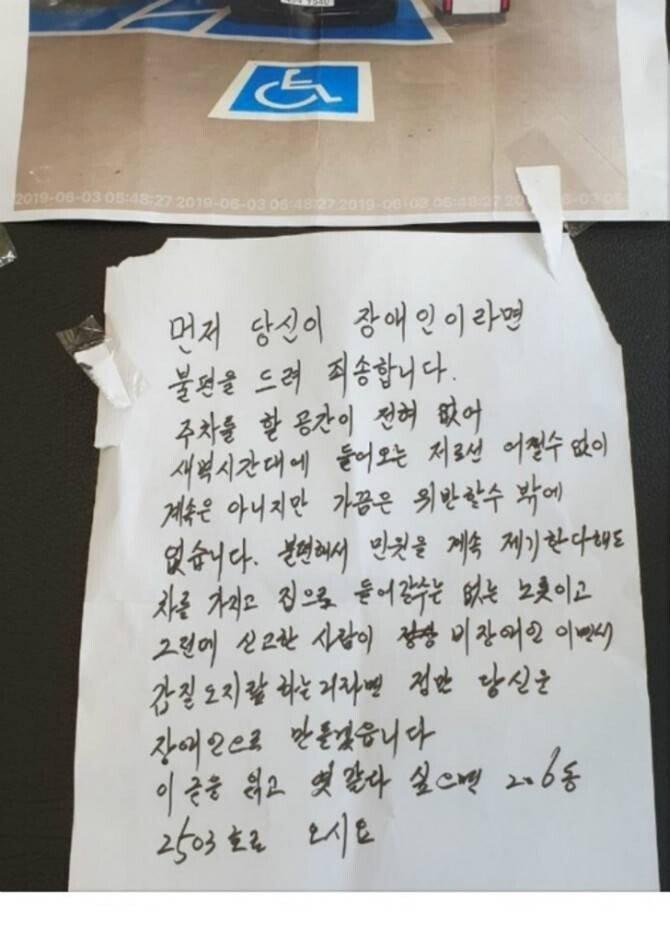 2019-06-03 05:48:27 2019-06-03 05:48:27 2019-06-03 05:48:27 20
먼저 당신이 장애인이라면
불편을 드려 죄송합니다.
주차를 할 공간이 전혀 없어
새벽시간대에 들어오는 저로선 어쩔수 없이
계속은 아니지만 가끔은 위반할수 밖에
없습니다. 불편해서 민원을 계속 제기한다해도
차를 가지고 집으로 들어갈수는 없는 노릇이고
그런데 신고한 사람이 비장애인 이면서
갑질 오지랖 하는거라면 당신은
장애인으로 만들겠읍니다
이 글을 읽고 엿 같다 싶으면 206동
2503호로 오시요